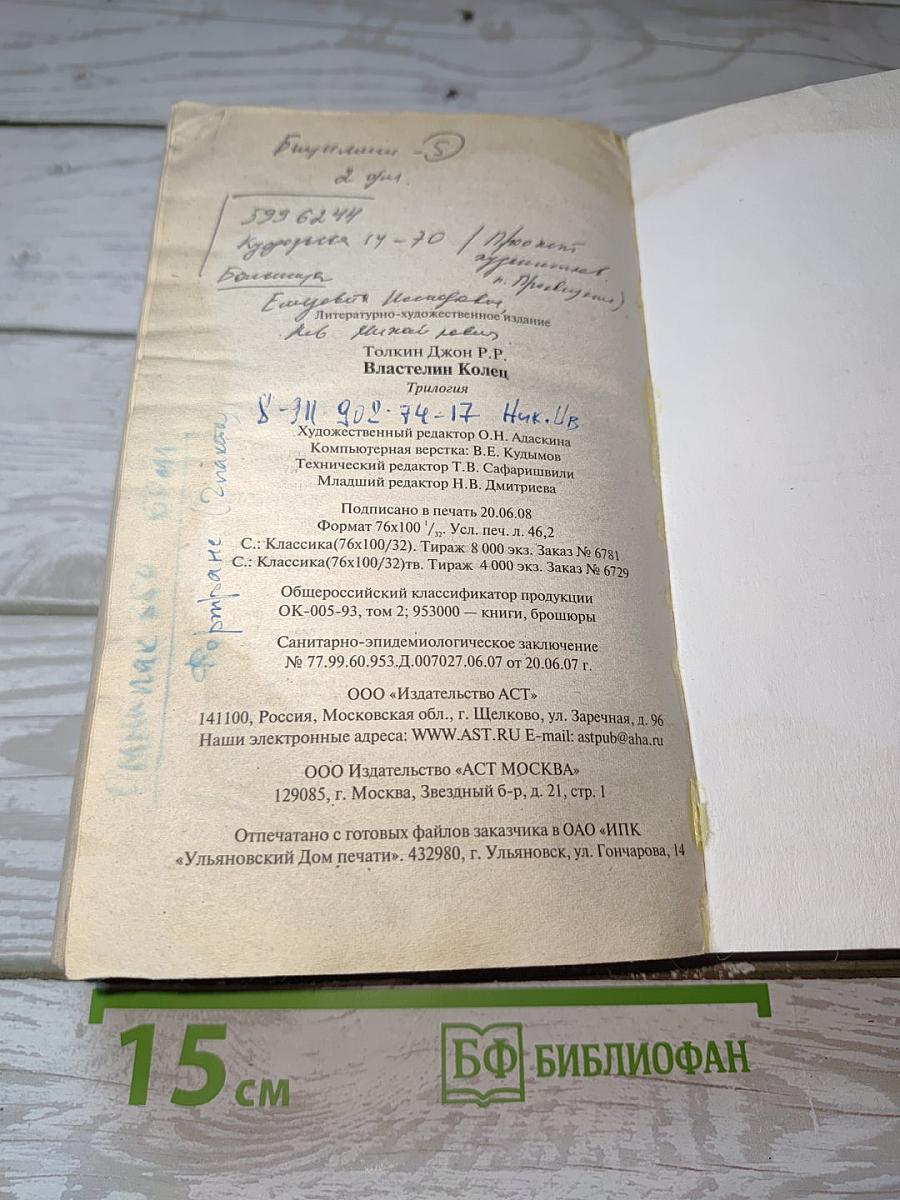 2 дня
5996244
14-70 / Проспект
художников
п. Просвещения)
Больница
Литературно-художественное издание
Лев Михайлович
Толкин Джон Р.Р.
Властелин Колец
Трилогия
8-911-902-74-17 Ник. Ив
Художественный редактор О.Н. Адаскина
Компьютерная верстка: В.Е. Кудымов
Технический редактор Т.В. Сафаришвили
Младший редактор Н.В. Дмитриева
Подписано в печать 20.06.08
Формат 76x100 1/32. Усл. печ. л. 46,2
С.: Классика(76x100/32). Тираж 8 000 экз. Заказ № 6781
С.: Классика(76x100/32)тв. Тираж 4 000 экз. Заказ № 6729
Общероссийский классификатор продукции
ОК-005-93, том 2; 953000 — книги, брошюры
Санитарно-эпидемиологическое заключение
№ 77.99.60.953.Д.007027.06.07 от 20.06.07 г.
ООО «Издательство АСТ»
141100, Россия, Московская обл., г. Щелково, ул. Заречная, д. 96
Наши электронные адреса: WWW.AST.RU E-mail: astpub@aha.ru
ООО Издательство «АСТ МОСКВА»
129085, г. Москва, Звездный б-р, д. 21, стр. 1
Отпечатано с готовых файлов заказчика в ОАО «ИПК
«Ульяновский Дом печати». 432980, г. Ульяновск, ул. Гончарова, 14
Фортране
15 см
БФ БИБЛИОФАН